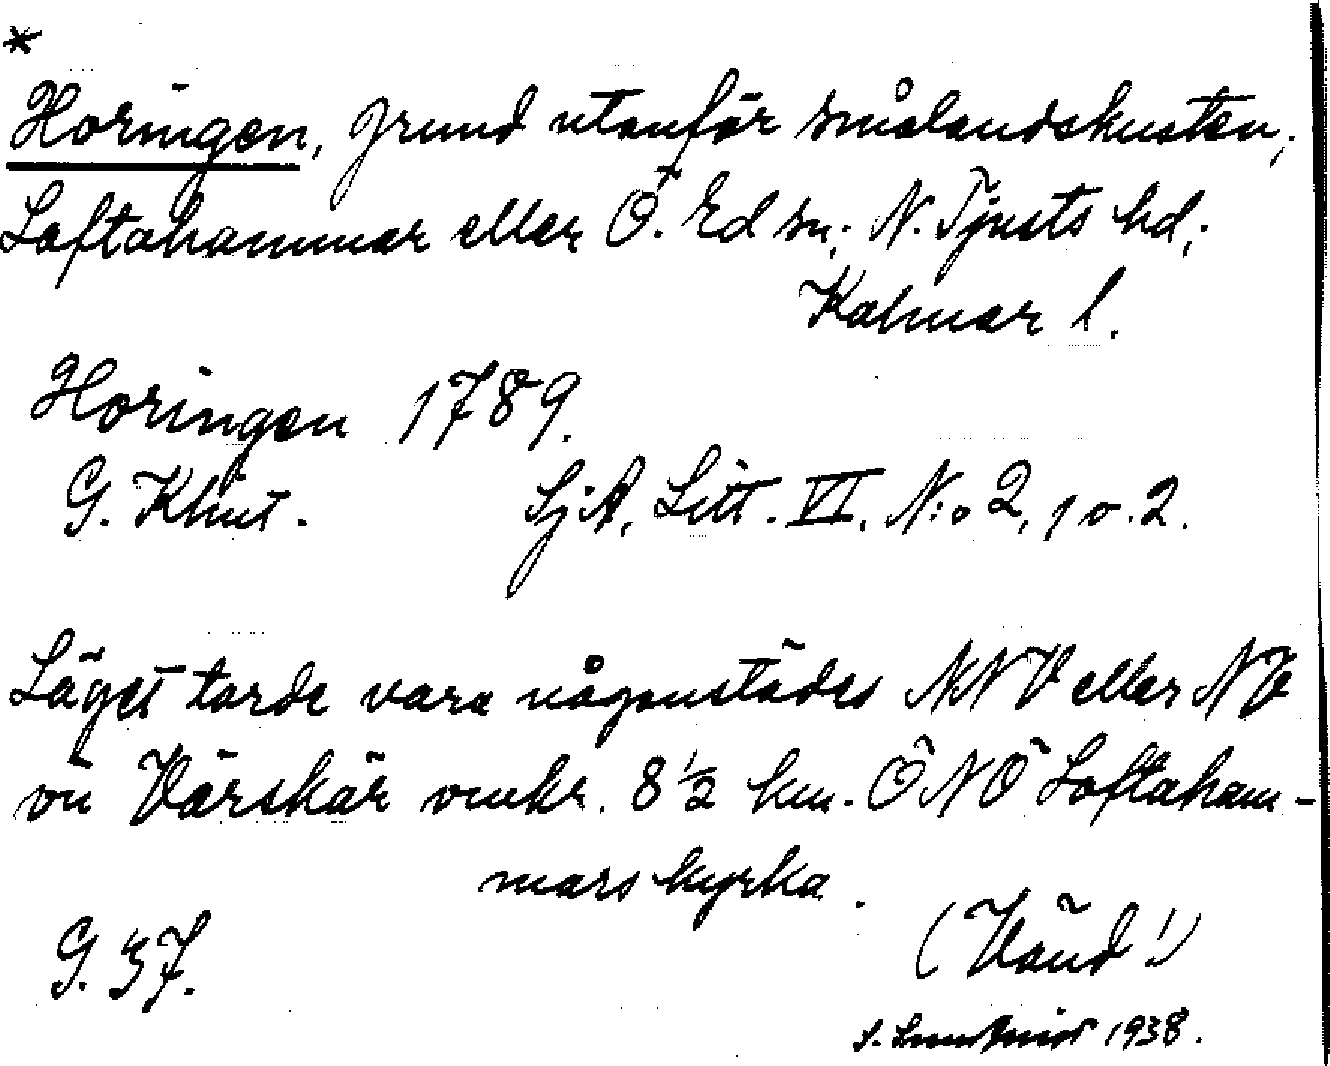 *
Horingen, grund utanför smålandskusten,
Loftahammar eller Ö. Ed sn; N. Tjusts hd;
Kalmar l.
Horingen 1789.
G. Klint. SjA, Litt. VI. N:o 2, 1 o. 2.
Läget torde vara någonstädes NNV eller NV
om Vårskär omkr. 8 ½ km. ÖNÖ Loftaham-
mars kyrka.
(Vänd!)
G. 37.
1938.